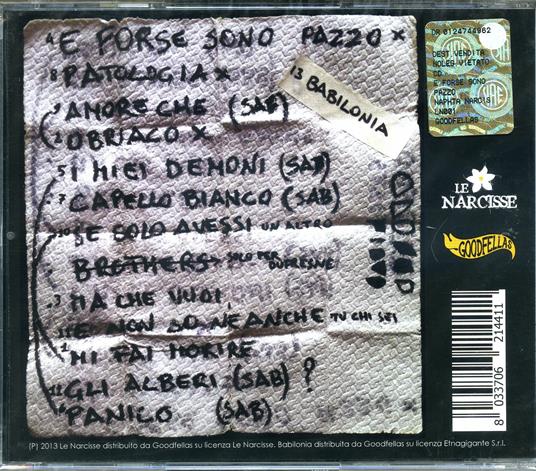 4 E FORSE SONO PAZZO x
8 PATOLOGIA x
9 AMORE CHE (SAB)
2 OBRIACO x
13 BABILONIA
5 I MIEI DEMONI (SAB)
7 CAPELLO BIANCO (SAB)
10 SE SOLO AVESSI UN ALTRO
BROTHERS SOLO PER DUFRESNE
3 MA CHE VUOI,
E NON SO NEANCHE TU CHI SEI
1 MI FAI MORIRE
GLI ALBERI (SAB) ?
PANICO (SAB)
DR 0124744962
DEST. VENDITA
NOLEG. VIETATO
CD.
E FORSE SONO
PAZZO
NAPHTA NARCIS
LN001
GOODFELLAS
LE
NARCISSE
GOODFELLAS
8 033706 214411
(P) 2013 Le Narcisse distribuito da Goodfellas su licenza Le Narcisse. Babilonia distribuita da Goodfellas su licenza Etnagigante S.r.l.